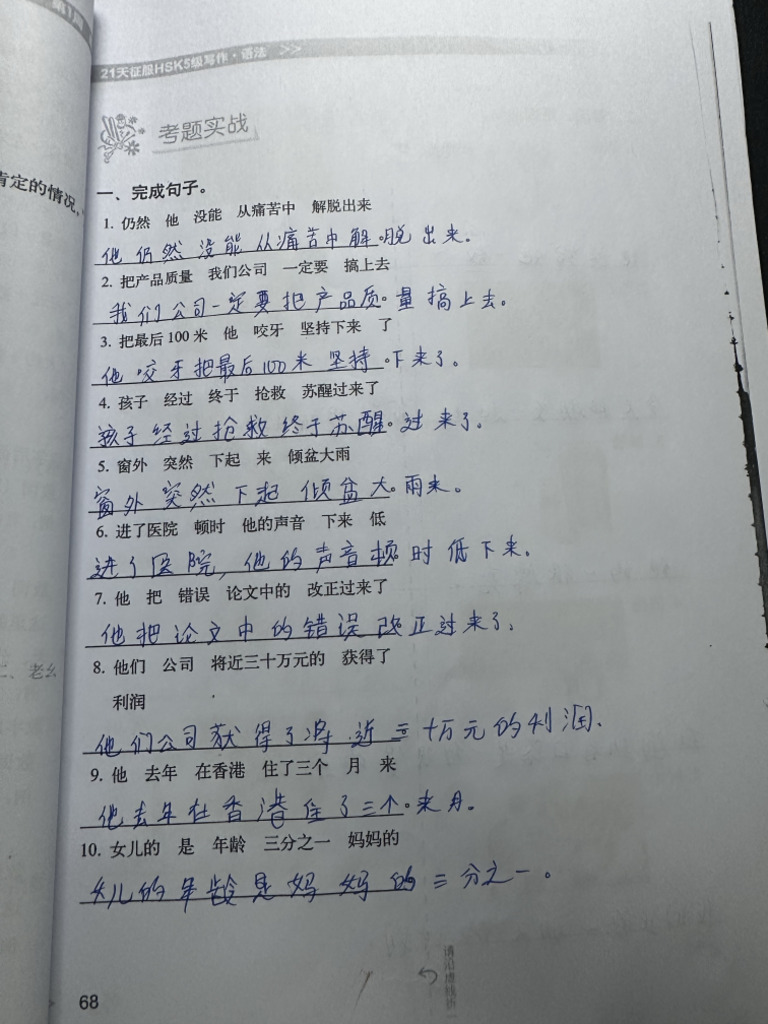 第1周
21天征服HSK5级写作·语法 >>
考题实战
肯定的情况,
一、完成句子。
1. 仍然 他 没能 从痛苦中 解脱出来
他仍然没能从痛苦中解脱出来。
2. 把产品质量 我们公司 一定要 搞上去
我们公司一定要把产品质量搞上去。
3. 把最后100米 他 咬牙 坚持下来 了
他咬牙把最后100米坚持下来了。
4. 孩子 经过 终于 抢救 苏醒过来了
孩子经过抢救终于苏醒过来了。
5. 窗外 突然 下起 来 倾盆大雨
窗外突然下起倾盆大雨来。
6. 进了医院 顿时 他的声音 下来 低
进了医院,他的声音顿时低下来。
7. 他 把 错误 论文中的 改正过来了
他把论文中的错误改正过来了。
8. 他们 公司 将近三十万元的 获得了
利润
他们公司获得了将近三十万元的利润.
9. 他 去年 在香港 住了三个 月 来
他去年在香港住了三个来月。
10. 女儿的 是 年龄 三分之一 妈妈的
女儿的年龄是妈妈的三分之一。
68